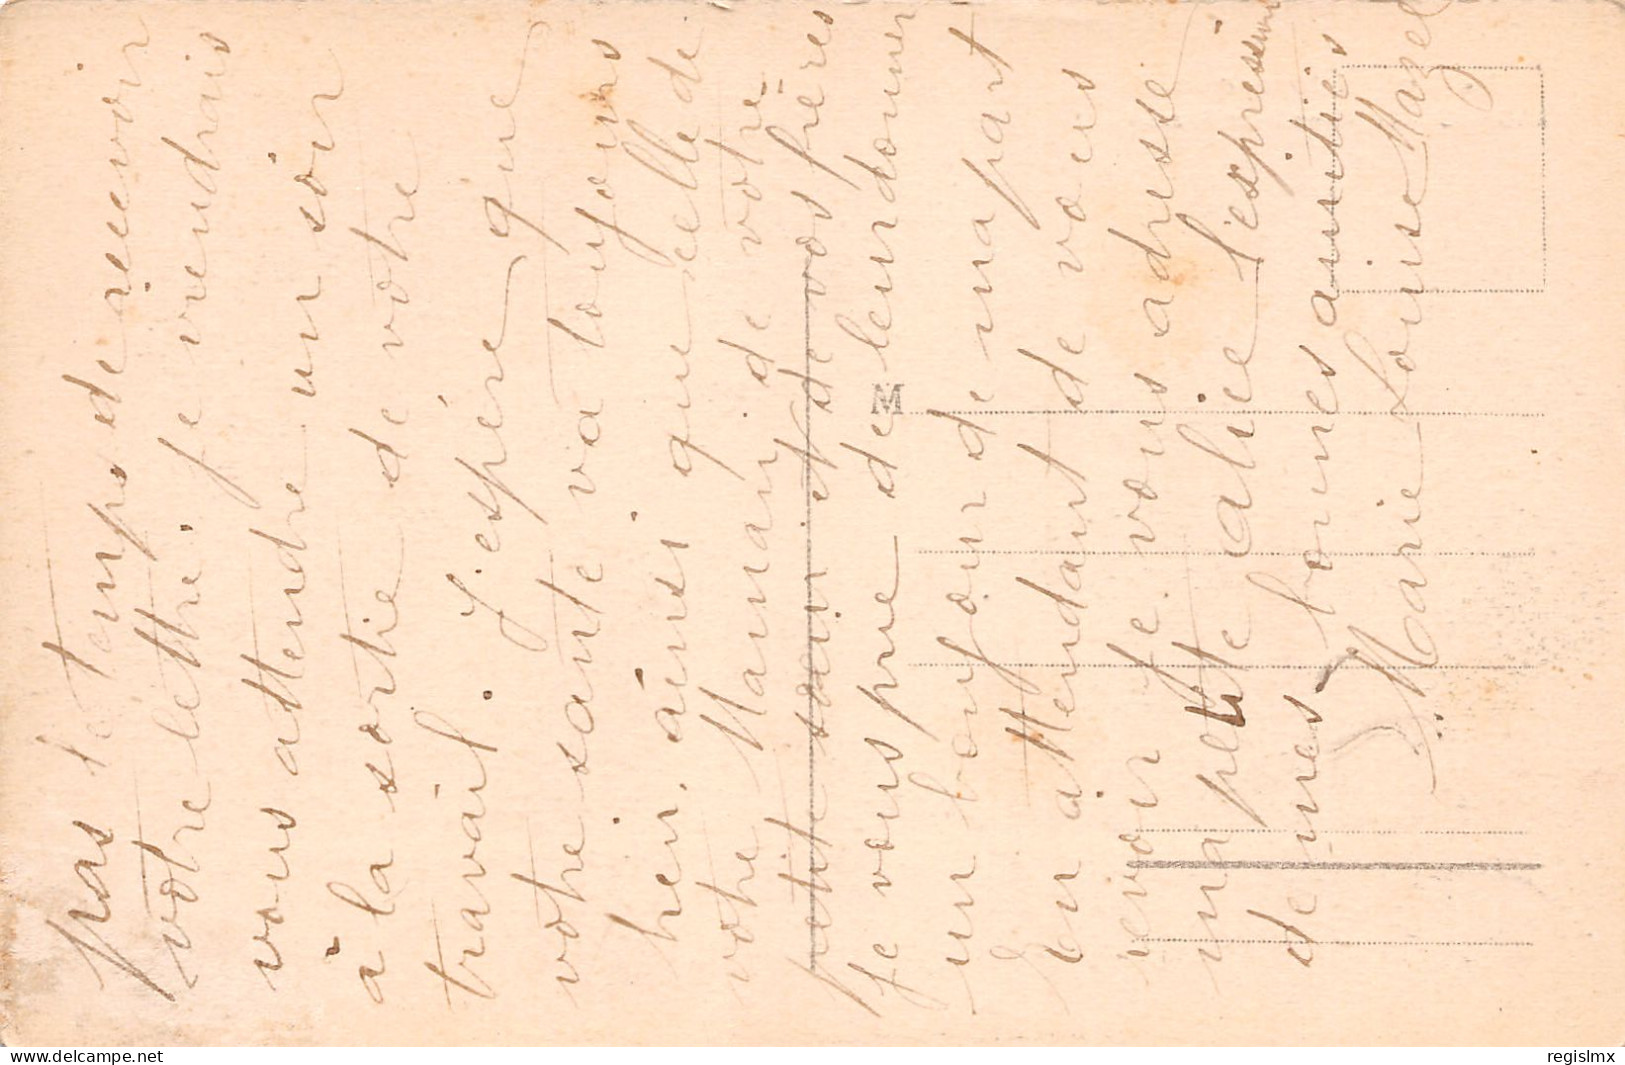 pas le temps de recevoir
votre lettre. je viendrais
vous attendre un soir
à la sortie de votre
travail. J'espère que
votre sante va toujours
bien, ainsi que celle de
votre Maman, de votre
petite sœur et de vos frères
je vous prie de leur donner
un bonjour de ma part
En attendant de vous
revoir je vous adresse
ma petite alice l'expression
de mes bonnes amitiés
Marie Louise Mazel
M
delcampe.net
regislmx